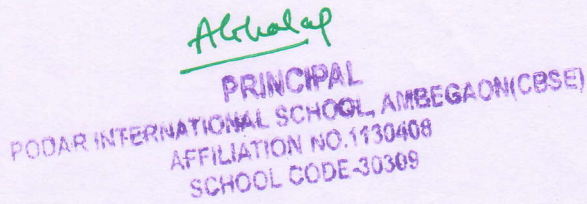 PRINCIPAL
PODAR INTERNATIONAL SCHOOL, AMBEGAON(CBSE)
AFFILIATION NO.1130408
SCHOOL CODE-30309